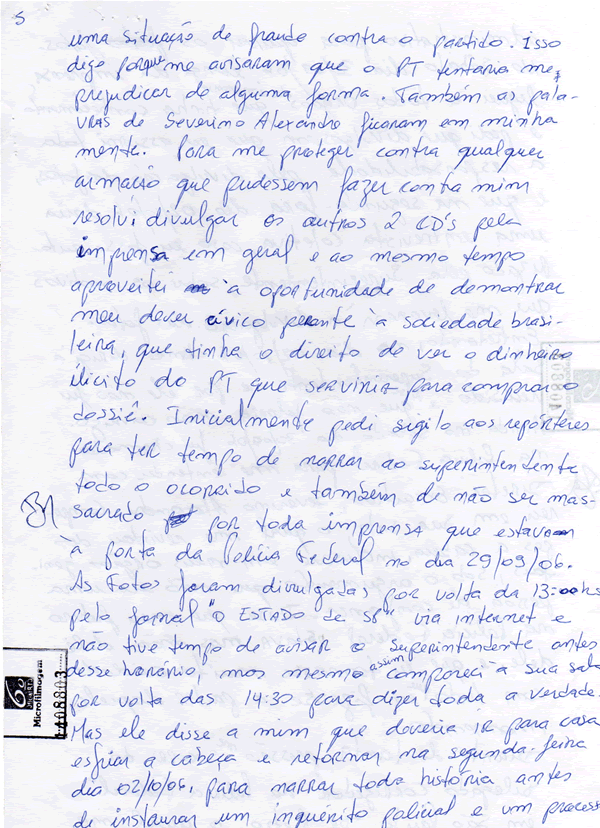 5
uma situação de fraude contra o partido. Isso
digo porque me avisaram que o PT tentaria me
prejudicar de alguma forma. Também as pala-
vras de Severino Alexandre ficaram em minha
mente. Para me proteger contra qualquer
armação que pudessem fazer contra mim
resolvi divulgar os outros 2 CD's pela
imprensa em geral e ao mesmo tempo
aproveitei a oportunidade de demontrar
meu dever cívico perante à sociedade brasi-
leira, que tinha o direito de ver o dinheiro
ilícito do PT que serviria para comprar o
dossiê. Inicialmente pedi sigilo aos repórteres
para ter tempo de narrar ao superintendente
todo o ocorrido e também de não ser mas-
sacrado por toda imprensa que estavam
à porta da Polícia Federal no dia 29/09/06.
As Fotos foram divulgadas por volta da 13:00hs
pelo jornal "O ESTADO de SP" via internet e
não tive tempo de avisar o superintendente antes
desse horário, mas mesmo assim compareci à sua sala
por volta das 14:30 para dizer toda a verdade.
Mas ele disse a mim que deveria ir para casa
esfriar a cabeça e retornar na segunda-feira
dia 02/10/06, para narrar toda história antes
de instaurar um inquérito policial e um processo
Microfilmagem
1408803